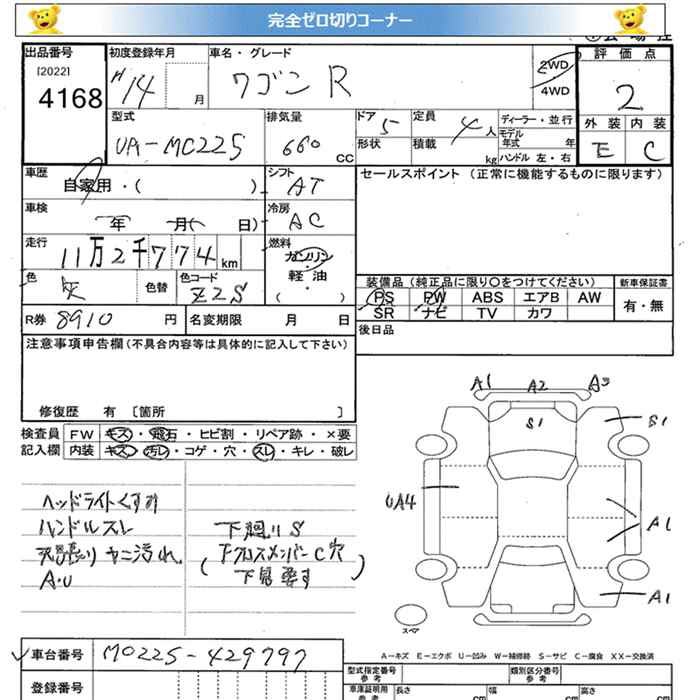 完全ゼロ切りコーナー
出品番号
[2022]
4168
初度登録年月
H14 月
車名・グレード
ワゴン R
2WD
4WD
評価点
2
外装 内装
E C
型式
UA-MC22S
排気量
660 CC
ドア 5
形状
定員 4 人
積載 kg
ディーラー・並行
モデル年式 年
ハンドル 左・右
車歴
自家用・( )
シフト
AT
車検
年 月( 日)
冷房
AC
走行
11万2千774 km
燃料
ガソリン
軽・油
( ・ )
色
灰
色替
色コード
Z2S
セールスポイント (正常に機能するものに限ります)
装備品 (純正品に限り○をつけてください)
新車保証書
PS PW ABS エアB AW
SR ナビ TV カワ
有・無
後日品
R券 8910 円
名変期限 月 日
注意事項申告欄(不具合内容等は具体的に記入して下さい)
修復歴 有 [箇所 ]
検査員
記入欄
FW キズ・飛石・ヒビ割・リペア跡・×要
内装 キズ・汚レ・コゲ・穴・スレ・キレ・破レ
ヘッドライトくすみ
ハンドルスレ
天張り ヤニ汚れ
A.U
下廻りS
(下クロスメンバーC穴
下見要す)
A1 A2 A3
S1
S1
UA4
A1
A1
スペア
A-キズ E-エクボ U-凹み W-補修跡 S-サビ C-腐食 XX-交換済
車台番号
MC22S-429797
登録番号
型式指定番号
参考
類別区分番号
参考
車庫証明用
参考
長さ cm
幅 cm
高さ cm